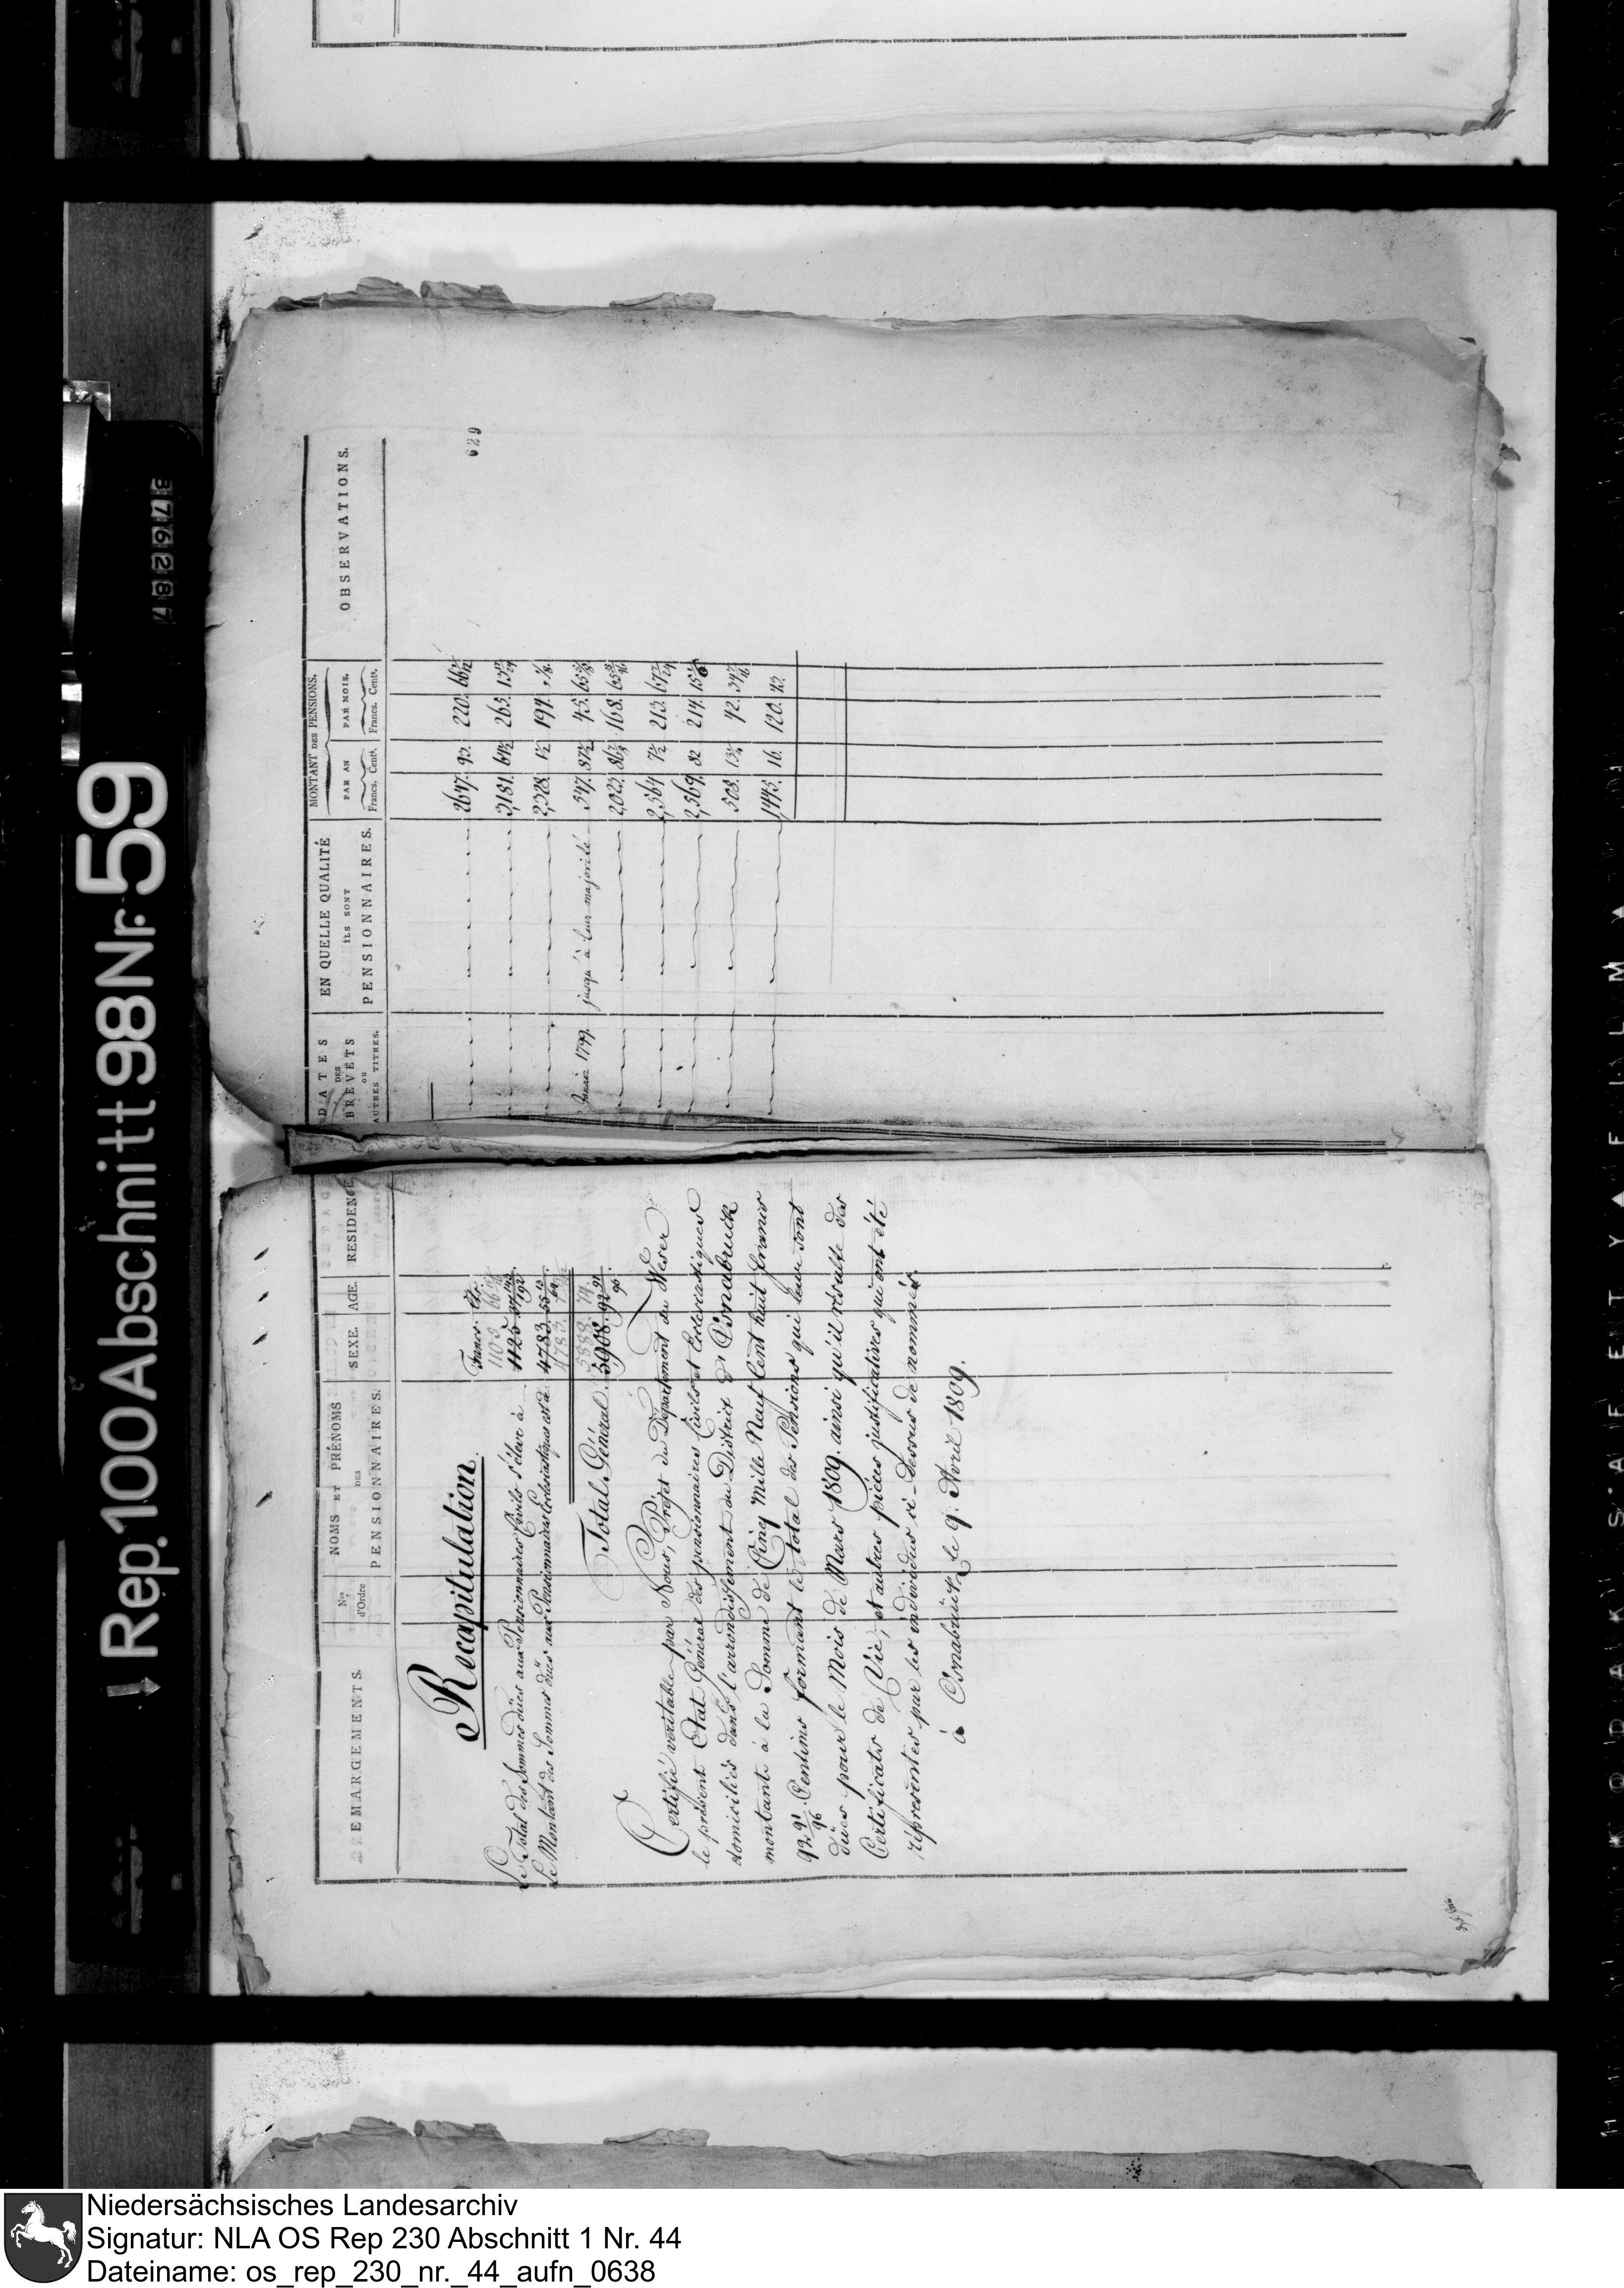 Rep. 100 Abschnitt 98 Nr. 59
376287
EMARGEMENTS.
Nos
d'Ordre
NOMS ET PRÉNOMS
DES
PENSIONNAIRES.
SEXE.
AGE.
RESIDENCE
Recapitulation.
Francs. Cts.
1103
Le Total des Sommes düès aux Pensionnaires Civils s'élève à 1125. 37 143/192
Le Montant des Sommes düès aux Pensionnaires Ecclesiastiques est à 4783. 55 13/64
4783
5888. 74.
Total Général. 5908. 92 91/96
Certifié véritable par Nous, Préfet du Département du Weser
le présent Etat Général des pensionnaires Civils et Ecclésiastiques
domiciliés dans l'arrondissement du District d'Osnabruck
montant à la Somme de Cinq Mille Neuf Cent huit francs
92 91/96 Centims formant le total des Pensions qui leur sont
düès pour le Mois de Mars 1809. ainsi qu'il résulte des
Certificats de Vie, et autres pièces justificatives qui ont été
représentés par les individus ci-dessus de nommés.
à Osnabrück le 9. Avril 1809.
DATES
DES
BREVETS
OU
AUTRES TITRES.
EN QUELLE QUALITÉ
ILS SONT
PENSIONNAIRES.
MONTANT DES PENSIONS.
PAR AN
PAR MOIS.
Francs. Cents.
Francs. Cents.
OBSERVATIONS.
629
2647. 92. 220. 66
3,181. 64½ 265. 13
2,328. 1½ 194.
1799. jusqu'à leur majorité 547. 87½ 45. 65
2,023. 168. 65
2,564 7½ 213. 67
2,569. 82 214. 15
508. 13 42. 34
1,445. 16. 120. 43.
Niedersächsisches Landesarchiv
Signatur: NLA OS Rep 230 Abschnitt 1 Nr. 44
Dateiname: os_rep_230_nr._44_aufn_0638